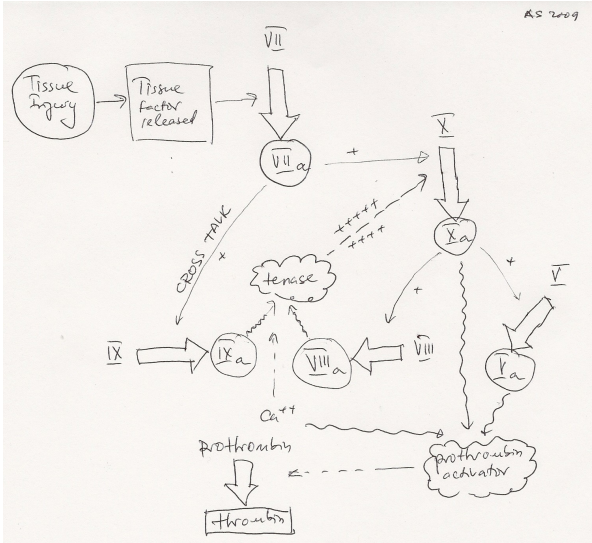 AS 2009
VII
Tissue
Injury
Tissue
factor
released
X
VIIa
+
+++++
++++
Xa
CROSS TALK
+
tenase
+
+
V
IX
IXa
VIIIa
VIII
Va
Ca++
prothrombin
prothrombin
activator
thrombin